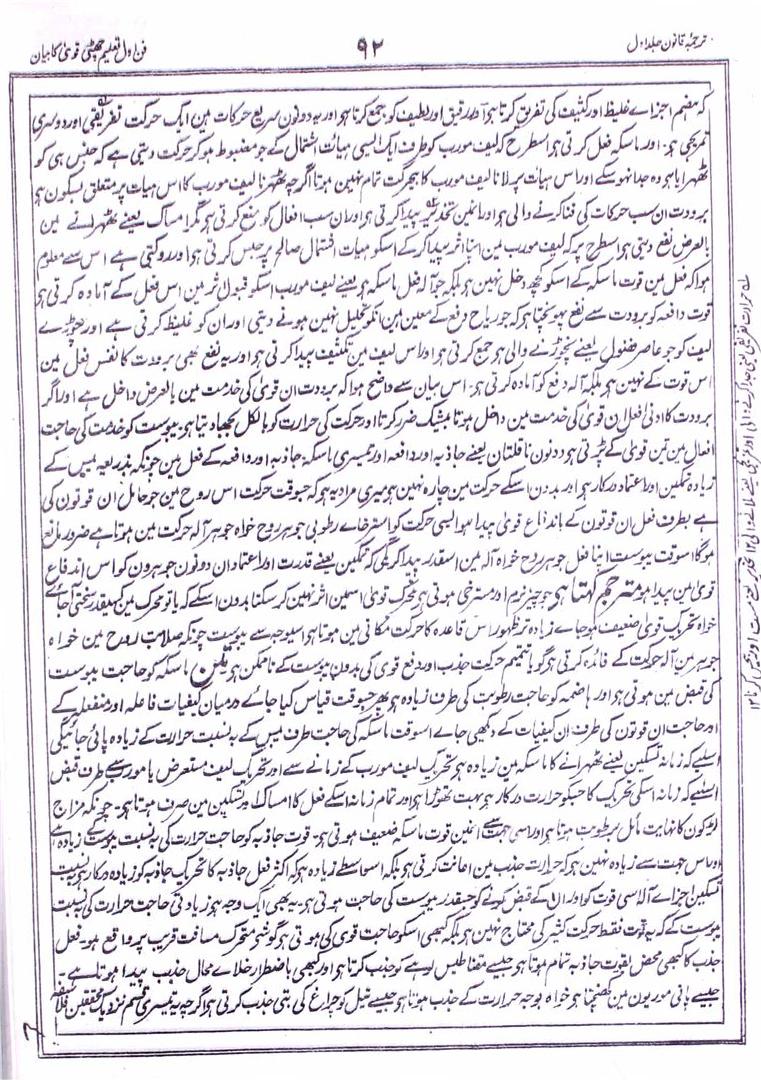 ترجمۂ قانون جلد اول
۹۲
فن اول تعلیم چھٹی قویٰ کا بیان
کہ ہضم اجزاے غلیظ اور کثیف کی تفریق کرتا ہو اور رقیق اور لطیف کو جمع کرتا ہو اور یہ دونون سریع حرکات مین ایک حرکت تفریقی اور دوسری
تمزیجی ہو۔ اور ماسکہ فعل کرتی ہو اسطرح کہ لیف مورب کو طرف ایک ایسی ہیات اشتمال کے جو مضبوط ہو کر حرکت دیتی ہے کہ جنس ہی کو
ٹھہرایا ہو وہ جدا نہو سکے اور اس ہیات پر لانا لیف مورب کا بے حرکت تمام نہین ہوتا اگرچہ ٹھہرنا لیف مورب کا اس ہیات پر متعلق بسکون ہو
برودت ان سب حرکات کی فنا کرنے والی ہو اور انمین تخدیر پیدا کرتی ہو اور ان سب افعال کو منع کرتی ہو مگر امساک یعنے ٹھہرانے مین
بالعرض نفع دیتی ہو اسطرح پر کہ لیف مورب مین اپنا اثر پیدا کر کے اسکو ہیات اشتمال صالح پر حبس کرتی ہو اور روکتی ہے اس سے معلوم
ہوا کہ فعل مین قوت ماسکہ کے اسکو کچھ دخل نہین ہو بلکہ جو آلہ فعل ماسکہ ہو یعنے لیف مورب اسکو قبول اثر مین اس فعل کے آمادہ کرتی ہو
قوت دافعہ کو برودت سے نفع پہونچتا ہو کہ جو ریاح دفع کے معین ہین انکو تحلیل نہین ہونے دیتی اور ان کو غلیظ کرتی ہے اور چوڑے
لیف کو جو عاصر فضول یعنے نچوڑنے والی ہو جمع کرتی ہو اور اس لیف مین تکثیف پیدا کرتی ہو اور یہ نفع بھی برودت کا نفس فعل مین
اس قوت کے نہین ہو بلکہ آلہ دفع کو آمادہ کرتی ہو۔ اس بیان سے واضح ہوا کہ برودت ان قویٰ کی خدمت مین بالعرض داخل ہے اور اگر
برودت کا ادنیٰ فعل ان قویٰ کی خدمت مین داخل ہوتا بیشک ضرر کرتا اور حرکت کی حرارت کو بالکل بجھا دیتا ہو یبوست کو خدمت کی حاجت
افعال مین تین قویٰ کے پڑتی ہو دونون ناقلتان یعنے جاذبہ اور دافعہ اور تیسری ماسکہ جاذبہ اور دافعہ کے فعل مین چونکہ بذریعہ یبس کے
زیادہ تمکین اور اعتماد درکار ہو اور بدون اسکے حرکت مین چارہ نہین ہو میری مراد یہ ہو کہ جسوقت حرکت اس روح مین جو حامل ان قوتون کی
ہے بطرف فعل ان قوتون کے باندفاع قوی پیدا ہو ایسی حرکت کو استرخاے رطوبی جوہر روح خواہ جوہر آلہ حرکت مین ہوتا ہے ضرور مانع
ہوگا اسوقت یبوست اپنا فعل جوہر روح خواہ آلہ مین اسقدر پیدا کریگی کہ تمکین یعنے قدرت اور اعتماد ان دونون جوہرون کو اس اندفاع
قوی مین پیدا ہو مترجم کہتا ہو جو چیز نرم اور مسترخی ہوتی ہو تحریک قوی اسمین اثر نہین کر سکتا بدون اسکے کہ یا تو محرک مین کسیقدر سختی آجائے
خواہ تحریک قوی ضعیف ہو جاے زیادہ تر ظہور اس قاعدہ کا حرکت مکانی مین ہوتا ہو اسیوجہ سے یبوست چونکہ صلابت روح مین خواہ
جوہر مین آلہ حرکت کے فائدہ کرتی ہو گویا تتمیم حرکت جذب اور دفع قوی کی بدون یبوست کے ناممکن ہو متن ماسکہ کو حاجت یبوست
کی قبض مین ہوتی ہو اور ہاضمہ کو حاجت رطوبت کی طرف زیادہ ہو پھر جسوقت قیاس کیا جاے درمیان کیفیات فاعلہ اور منفعلہ کے
اور حاجت ان قوتون کی طرف ان کیفیات کے دیکھی جاے اسوقت ماسکہ کی حاجت طرف یبس کے بہ نسبت حرارت کے زیادہ پائی جائیگی
اسلیے کہ زمانہ تسکین یعنے ٹھہرانے کا ماسکہ مین زیادہ ہو تحریک لیف مورب کے زمانے سے اور تحریک لیف مستعرض یا مورب سے طرف قبض
اسلیے کہ زمانہ اسکی تحریک کا جسکو حرارت درکار ہو بہت تھوڑا ہو اور تمام زمانہ اسکے فعل کا امساک اور تسکین مین صرف ہوتا ہو۔ چونکہ مزاج
لڑکون کا نہایت مائل برطوبت ہوتا ہو اور اسی جہت سے انمین قوت ماسکہ ضعیف ہوتی ہو۔ قوت جاذبہ کو حاجت حرارت کی بہ نسبت یبوست کے زیادہ ہے
اور اس جہت سے زیادہ نہین ہو کہ حرارت جذب مین اعانت کرتی ہو بلکہ اسواسطے زیادہ ہو کہ اکثر فعل جاذبہ کا تحریک جاذبہ کو زیادہ درکار ہو بہ نسبت
تسکین اجزاے آلہ اسی قوت کو اور ان کے قبض کرنے کو جسقدر یبوست کی حاجت ہوتی ہو۔ یہ بھی ایک وجہ ہو زیادتی حاجت حرارت کی بہ نسبت
یبوست کے کہ یہ قوت فقط حرکت کثیر کی محتاج نہین ہو بلکہ کبھی اسکو حاجت قوی کی ہوتی ہو گو شے متحرک مسافت قریب پر واقع ہو۔ فعل
جذب کا کبھی محض بقوت جاذبہ تمام ہوتا ہو جیسے مقناطیس لوہے کو جذب کرتا ہو اور کبھی باضطرار خلاے محال جذب پیدا ہوتا ہے۔
جیسے پانی موریون مین کھنچتا ہو خواہ بوجہ حرارت کے جذب ہوتا ہو جیسے تیل کو چراغ کی بتی جذب کرتی ہو اگرچہ یہ تیسری قسم نزدیک محققین فلاسفہ